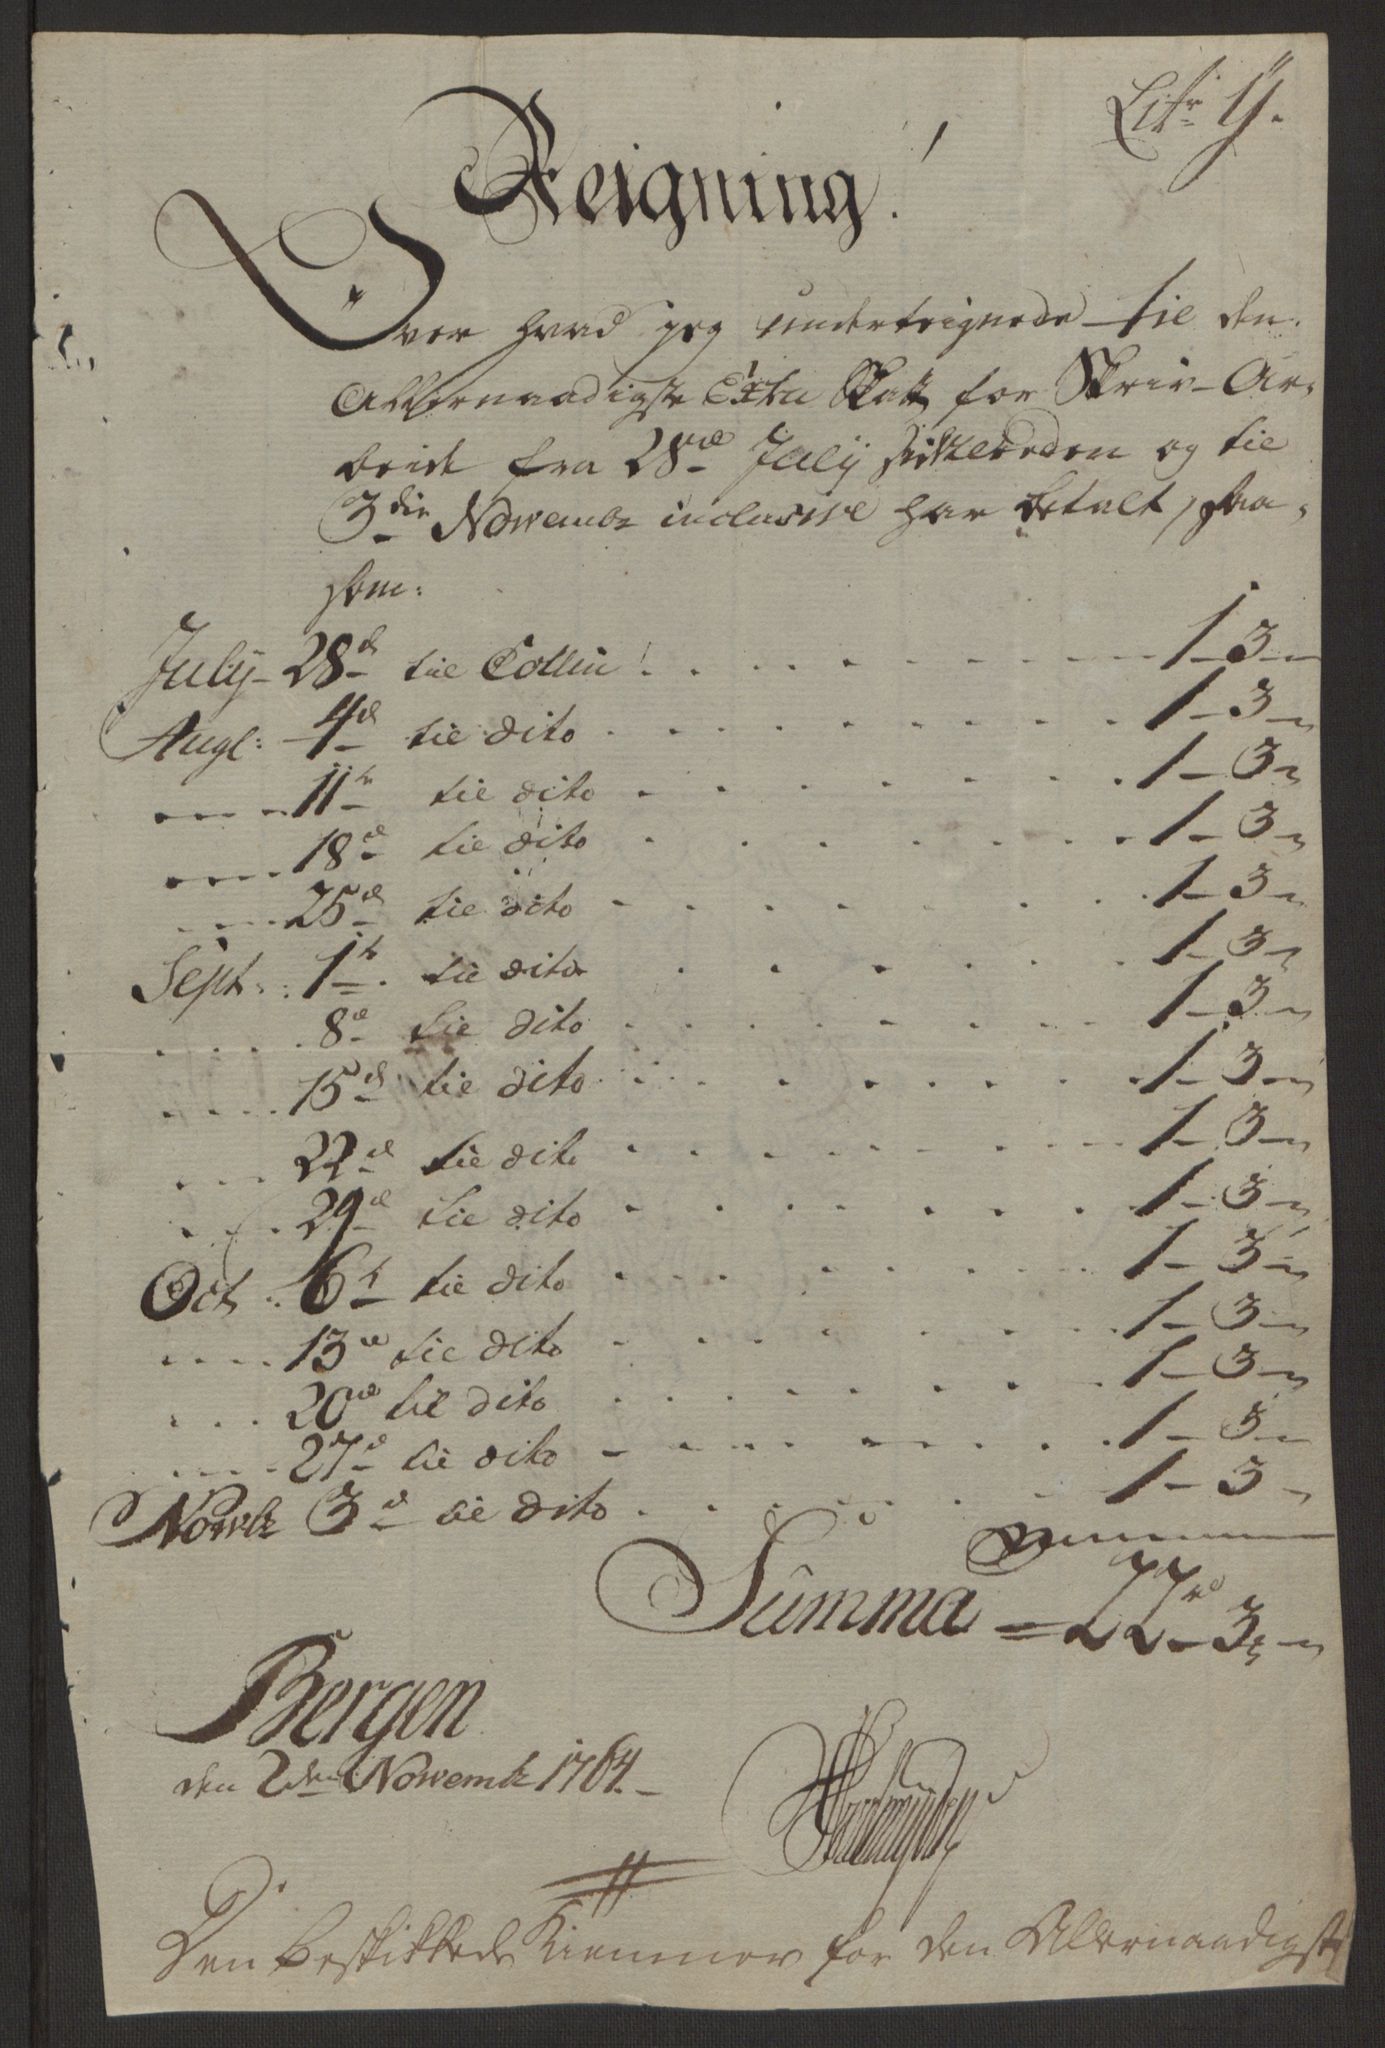 Litr: Y.
Reigning!
Over hvad jeg underteignede til den
Allernaadigste Extra Skatt for Skriv-Ar-
beide fra 28de July og til
3die Nowembr inclusive har betalt, saa-
som:
July 28d til Collin! 1 - 3 -
Augt: 4d til dito 1 - 3 -
11te til dito 1 - 3 -
18de til dito 1 - 3 -
25de til dito 1 - 3 -
Sept: 1te til dito 1 - 3 -
8de til dito 1 - 3 -
15de til dito 1 - 3 -
22de til dito 1 - 3 -
29de til dito 1 - 3 -
Oct: 6te til dito 1 - 3 -
13de til dito 1 - 3 -
20de til dito 1 - 3 -
27d til dito 1 - 3 -
Nowbr 3d til dito 1 - 3 -
Summa = 22rd 3 -
Bergen
den 2den Nowembr 1764.
Den beskikkede Kiemner for den Allernaadigste